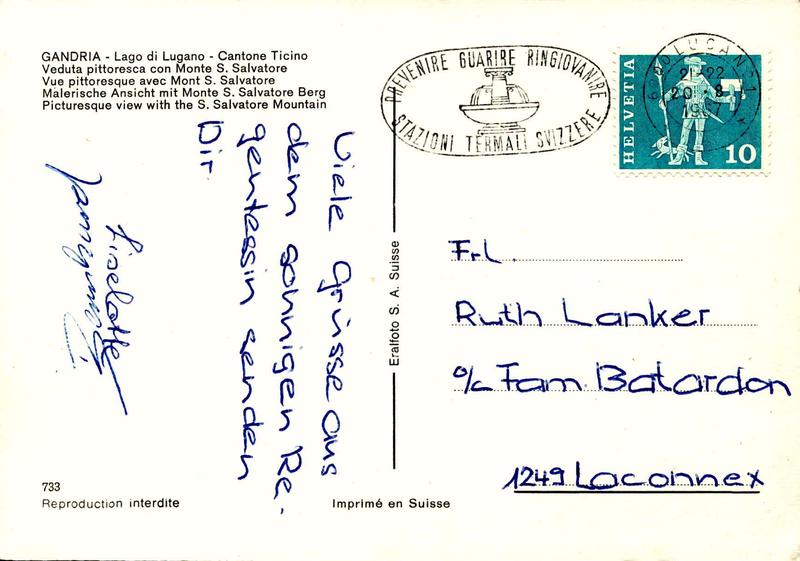 GANDRIA - Lago di Lugano - Cantone Ticino
Veduta pittoresca con Monte S. Salvatore
Vue pittoresque avec Mont S. Salvatore
Malerische Ansicht mit Monte S. Salvatore Berg
Picturesque view with the S. Salvatore Mountain
PREVENIRE GUARIRE RINGIOVANIRE
STAZIONI TERMALI SVIZZERE
LUGANO 1
22
20 8
1967
HELVETIA
10
Viele Grüsse aus
dem sonnigen Re-
gentessin senden
Dir
Liselotte
Eralfoto S. A. Suisse
Frl.
Ruth Lanker
c/o Fam. Batardon
1249 Laconnex
733
Reproduction interdite
Imprimé en Suisse